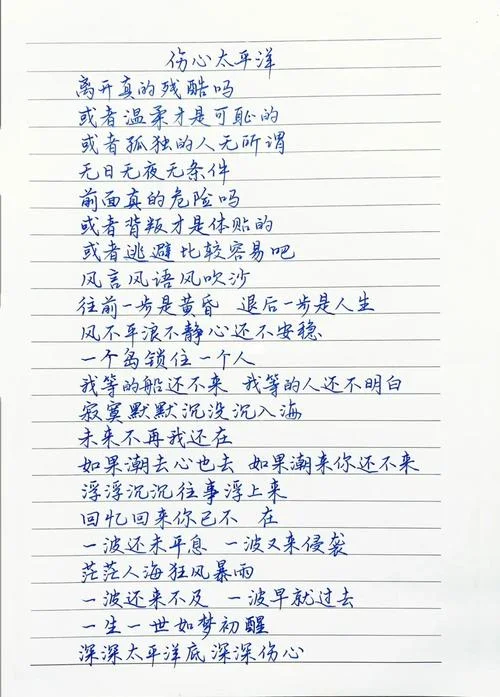 伤心太平洋
离开真的残酷吗
或者温柔才是可耻的
或者孤独的人无所谓
无日无夜无条件
前面真的危险吗
或者背叛才是体贴的
或者逃避比较容易吧
风言风语风吹沙
往前一步是黄昏 退后一步是人生
风不平浪不静心还不安稳
一个岛锁住一个人
我等的船还不来 我等的人还不明白
寂寞默默沉没沉入海
未来不再我还在
如果潮去心也去 如果潮来你还不来
浮浮沉沉往事浮上来
回忆回来你已不 在
一波还未平息 一波又来侵袭
茫茫人海狂风暴雨
一波还来不及 一波早就过去
一生一世如梦初醒
深深太平洋底深深伤心